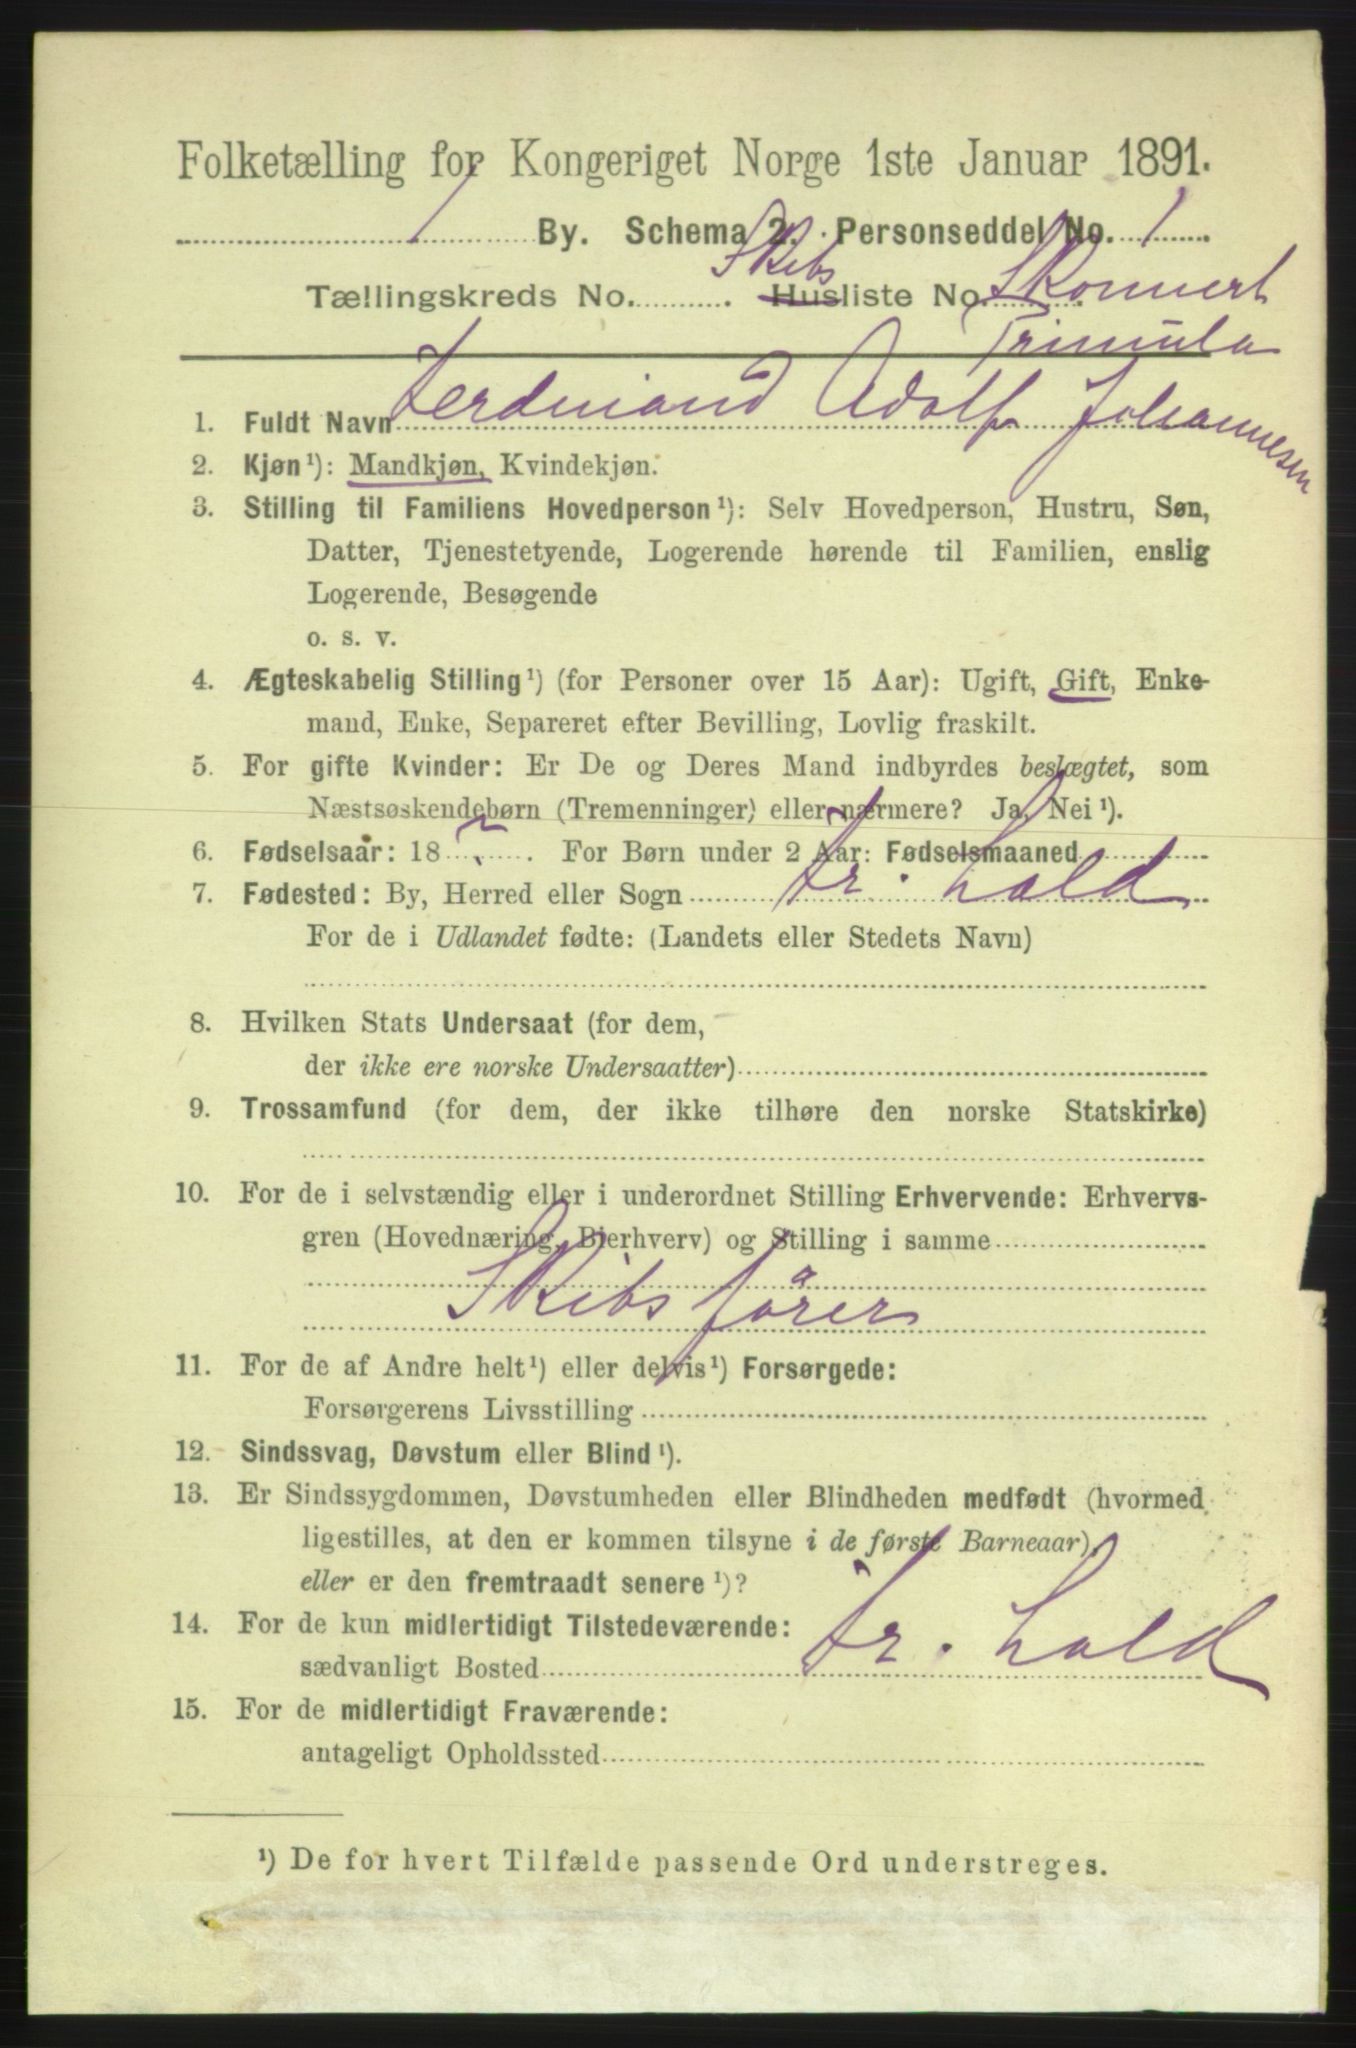 Folketælling for Kongeriget Norge 1ste Januar 1891.
1 By. Schema 2. Personseddel No. 1
Skibs
Tællingskreds No. . Husliste No. Skonnert
Primula
1. Fuldt Navn Ferdinand Adolf Johannesen
2. Kjøn ¹): Mandkjøn, Kvindekjøn.
3. Stilling til Familiens Hovedperson ¹): Selv Hovedperson, Hustru, Søn,
Datter, Tjenestetyende, Logerende hørende til Familien, enslig
Logerende, Besøgende
o. s. v.
4. Ægteskabelig Stilling ¹) (for Personer over 15 Aar): Ugift, Gift, Enke-
mand, Enke, Separeret efter Bevilling, Lovlig fraskilt.
5. For gifte Kvinder: Er De og Deres Mand indbyrdes beslægtet, som
Næstsøskendebørn (Tremenninger) eller nærmere? Ja, Nei ¹).
6. Fødselsaar: 18 ? . For Børn under 2 Aar: Fødselsmaaned
7. Fødested: By, Herred eller Sogn Fr. hald
For de i Udlandet fødte: (Landets eller Stedets Navn)
8. Hvilken Stats Undersaat (for dem,
der ikke ere norske Undersaatter)
9. Trossamfund (for dem, der ikke tilhøre den norske Statskirke)
10. For de i selvstændig eller i underordnet Stilling Erhvervende: Erhvervs-
gren (Hovednæring, Bierhverv) og Stilling i samme
Skibsförer
11. For de af Andre helt ¹) eller delvis ¹) Forsørgede:
Forsørgerens Livsstilling
12. Sindssvag, Døvstum eller Blind ¹).
13. Er Sindssygdommen, Døvstumheden eller Blindheden medfødt (hvormed
ligestilles, at den er kommen tilsyne i de første Barneaar),
eller er den fremtraadt senere ¹)?
14. For de kun midlertidigt Tilstedeværende:
sædvanligt Bosted Fr. hald
15. For de midlertidigt Fraværende:
antageligt Opholdssted
¹) De for hvert Tilfælde passende Ord understreges.